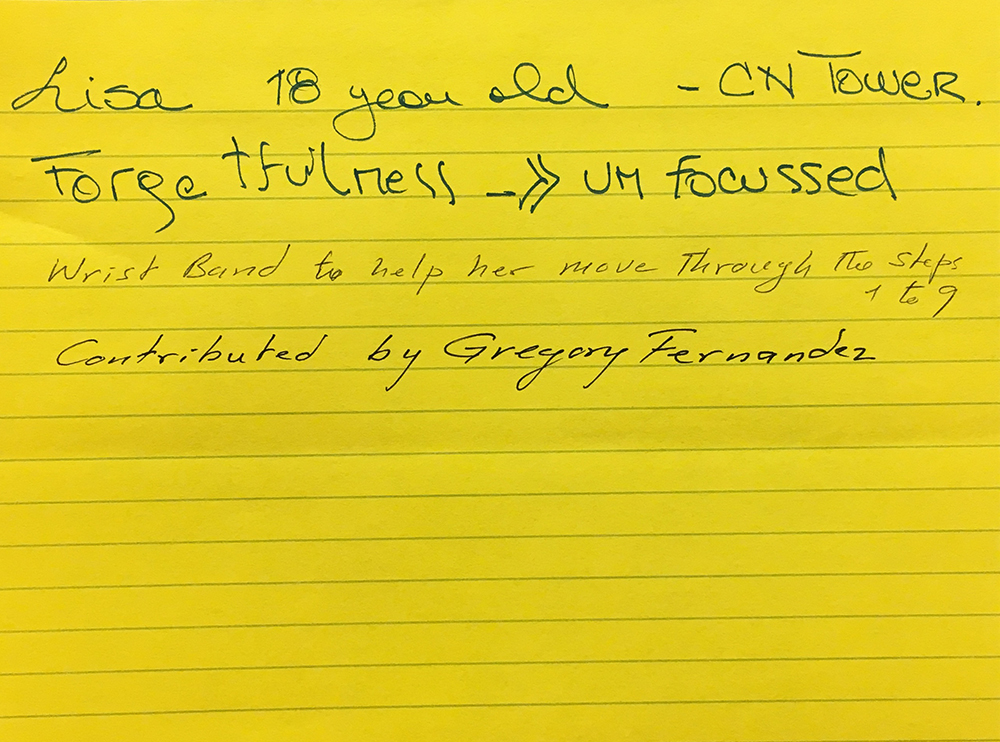 Lisa 18 year old - CN TOWER.
Forgetfulness -» un focussed
Wrist Band to help her move Through The steps
1 to 9
Contributed by Gregory Fernandez